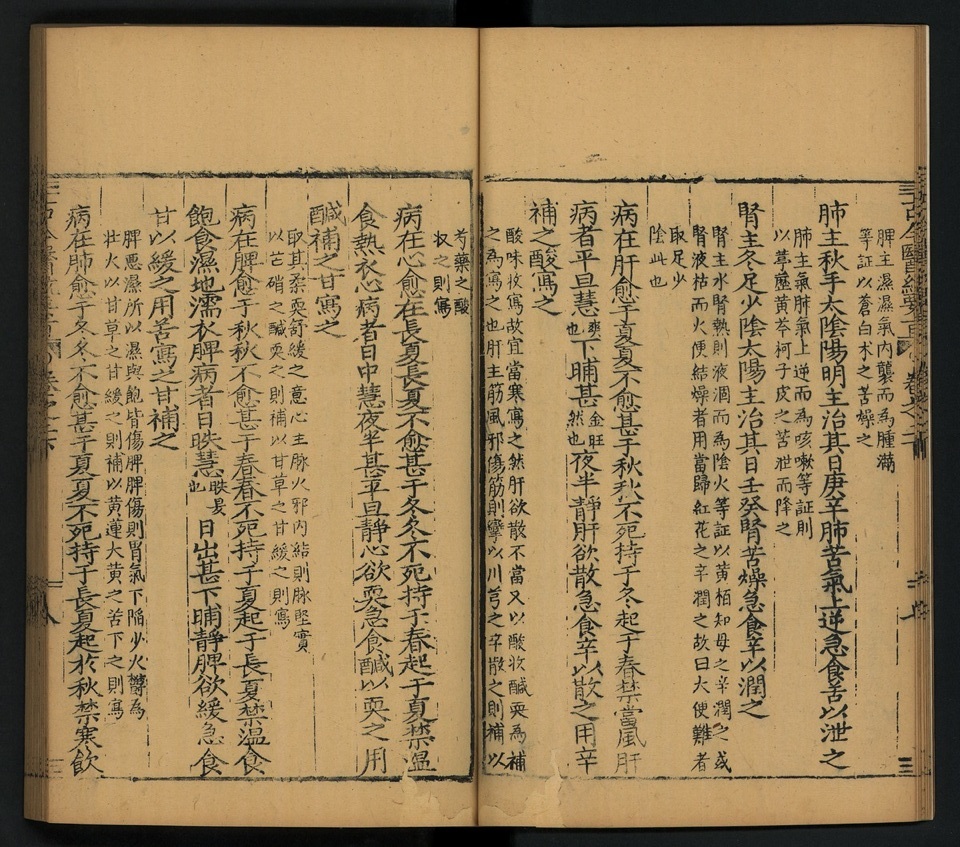 脾主濕濕氣內襲而為腫滿
等証以蒼白朮之苦燥之
肺主秋手太陰陽明主治其日庚辛肺苦氣上逆急食苦以泄之
肺主氣肺氣上逆而為咳嗽等証則
以葶藶黃芩柯子皮之苦泄而降之
腎主冬足少陰太陽主治其日壬癸腎苦燥急食辛以潤之
腎主水腎熱則液涸而為陰火等証以黃栢知母之辛潤之或
腎液枯而火便結燥者用當歸紅花之辛潤之故曰大便難者
取足少
陰此也
病在肝愈于夏夏不愈甚于秋秋不死持于冬起于春禁當風肝
病者平旦慧爽也下晡甚金旺然也夜半靜肝欲散急食辛以散之用辛
補之酸寫之
酸味收寫故宜當寒寫之然肝欲散不當又以酸收鹹耎為補
之為寫之也肝主筋風邪傷筋則攣以川芎之辛散之則補以
芍藥之酸
収之則寫
病在心愈在長夏長夏不愈甚于冬冬不死持于春起于夏禁溫
食熱衣心病者日中慧夜半甚平旦靜心欲耎急食鹹以耎之用
鹹補之甘寫之
取其柔耎舒緩之意心主脉火邪內結則脉堅實
以芒硝之鹹耎之則補以甘草之甘緩之則寫
病在脾愈于秋秋不愈甚于春春不死持于夏起于長夏禁溫食
飽食濕地濡衣脾病者日昳慧昳晏也日出甚下晡靜脾欲緩急食
甘以緩之用苦寫之甘補之
脾惡濕所以濕與飽皆傷脾脾傷則胃氣下陷少火欝為
壯火以甘草之甘緩之則補以黃連大黃之苦下之則寫
病在肺愈于冬冬不愈甚于夏夏不死持于長夏起於秋禁寒飲